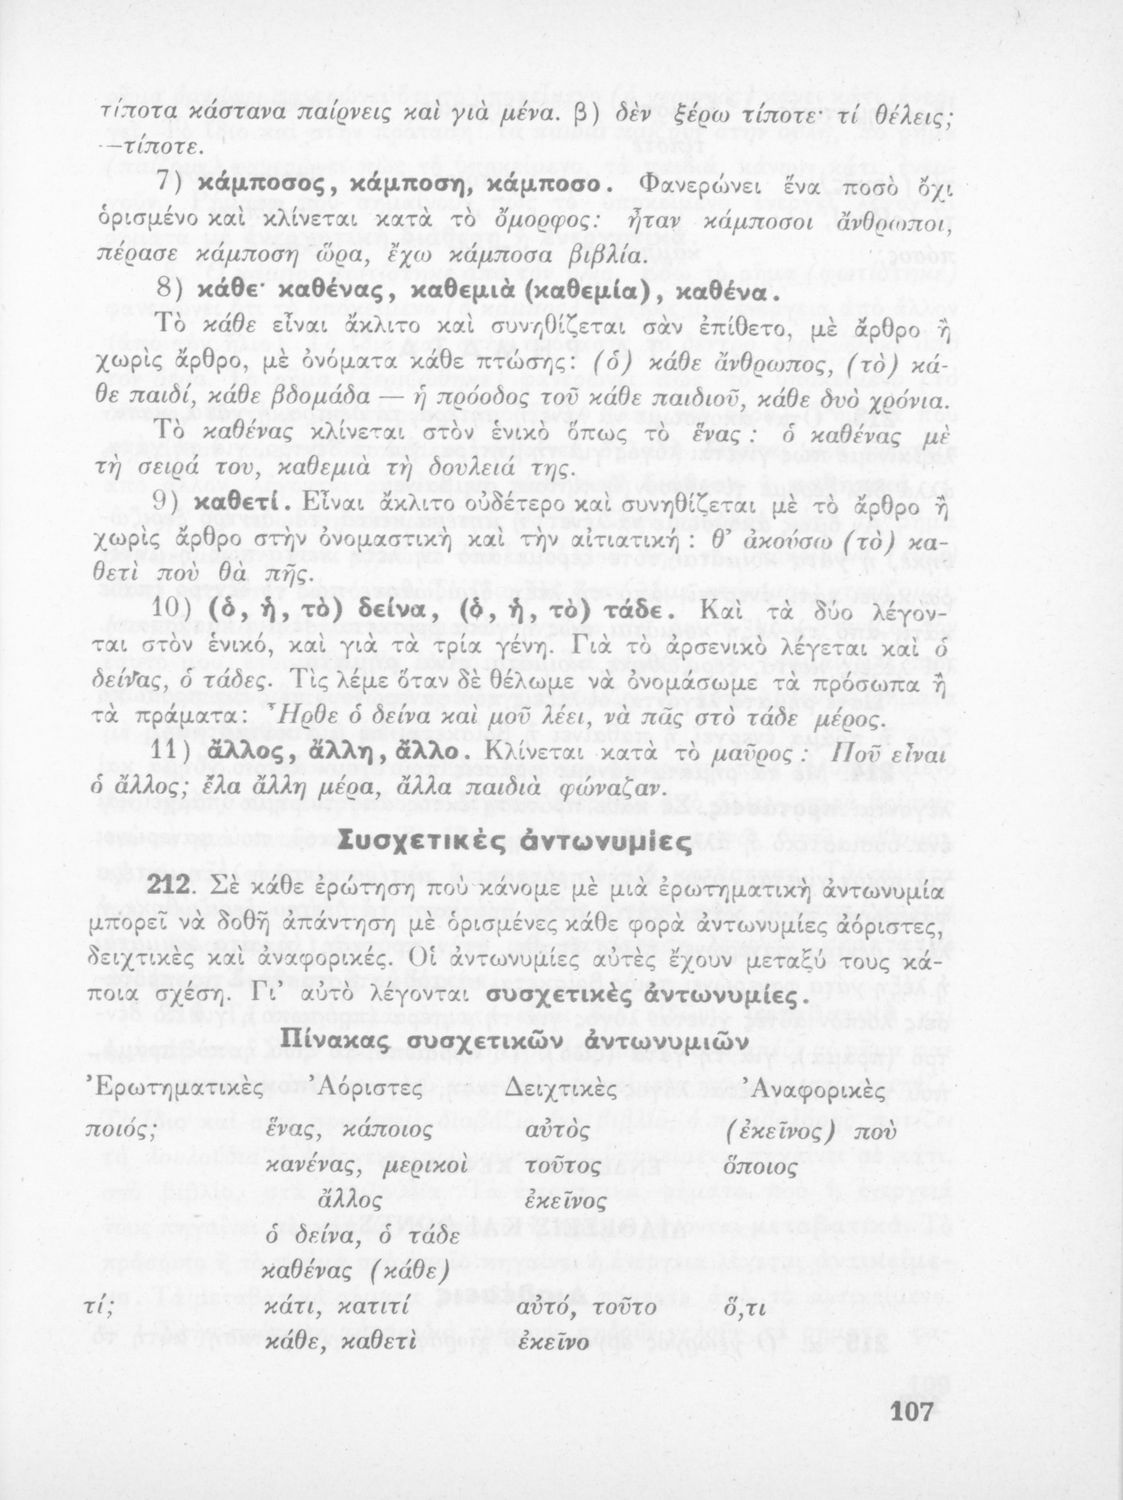 τίποτα κάστανα παίρνεις καὶ γιὰ μένα. β) δὲν ξέρω τίποτε· τί θέλεις;
—τίποτε.
7) κάμποσος, κάμποση, κάμποσο. Φανερώνει ἕνα ποσὸ ὄχι
ὁρισμένο καὶ κλίνεται κατὰ τὸ ὄμορφος: ἦταν κάμποσοι ἄνθρωποι,
πέρασε κάμποση ὥρα, ἔχω κάμποσα βιβλία.
8) κάθε· καθένας, καθεμιὰ (καθεμία), καθένα.
Τὸ κάθε εἶναι ἄκλιτο καὶ συνηθίζεται σὰν ἐπίθετο, μὲ ἄρθρο ἢ
χωρὶς ἄρθρο, μὲ ὀνόματα κάθε πτώσης: (ὁ) κάθε ἄνθρωπος, (τὸ) κά-
θε παιδί, κάθε βδομάδα — ἡ πρόοδος τοῦ κάθε παιδιοῦ, κάθε δυὸ χρόνια.
Τὸ καθένας κλίνεται στὸν ἑνικὸ ὅπως τὸ ἕνας : ὁ καθένας μὲ
τὴ σειρά του, καθεμιὰ τὴ δουλειά της.
9) καθετί. Εἶναι ἄκλιτο οὐδέτερο καὶ συνηθίζεται μὲ τὸ ἄρθρο ἢ
χωρὶς ἄρθρο στὴν ὀνομαστικὴ καὶ τὴν αἰτιατική : θ’ ἀκούσω (τὸ) κα-
θετὶ ποὺ θὰ πῆς.
10) (ὁ, ἡ, τὸ) δείνα, (ὁ, ἡ, τὸ) τάδε. Καὶ τὰ δύο λέγον-
ται στὸν ἑνικό, καὶ γιὰ τὰ τρία γένη. Γιὰ τὸ ἀρσενικὸ λέγεται καὶ ὁ
δείνας, ὁ τάδες. Τὶς λέμε ὅταν δὲ θέλωμε νὰ ὀνομάσωμε τὰ πρόσωπα ἢ
τὰ πράματα: Ἦρθε ὁ δείνα καὶ μοῦ λέει, νὰ πᾶς στὸ τάδε μέρος.
11) ἄλλος, ἄλλη, ἄλλο. Κλίνεται κατὰ τὸ μαῦρος : Ποῦ εἶναι
ὁ ἄλλος; ἔλα ἄλλη μέρα, ἄλλα παιδιὰ φώναζαν.
Συσχετικὲς ἀντωνυμίες
212. Σὲ κάθε ἐρώτηση ποὺ κάνομε μὲ μιὰ ἐρωτηματικὴ ἀντωνυμία
μπορεῖ νὰ δοθῆ ἀπάντηση μὲ ὁρισμένες κάθε φορὰ ἀντωνυμίες ἀόριστες,
δειχτικὲς καὶ ἀναφορικές. Οἱ ἀντωνυμίες αὐτὲς ἔχουν μεταξύ τους κά-
ποια σχέση. Γι’ αὐτὸ λέγονται συσχετικὲς ἀντωνυμίες.
Πίνακας συσχετικῶν ἀντωνυμιῶν
Ἐρωτηματικὲς Ἀόριστες Δειχτικὲς Ἀναφορικὲς
ποιός; ἕνας, κάποιος αὐτὸς (ἐκεῖνος) ποὺ
κανένας, μερικοὶ τοῦτος ὅποιος
ἄλλος ἐκεῖνος
ὁ δείνα, ὁ τάδε
καθένας (κάθε)
τί; κάτι, κατιτί αὐτό, τοῦτο ὅ,τι
κάθε, καθετὶ ἐκεῖνο
107